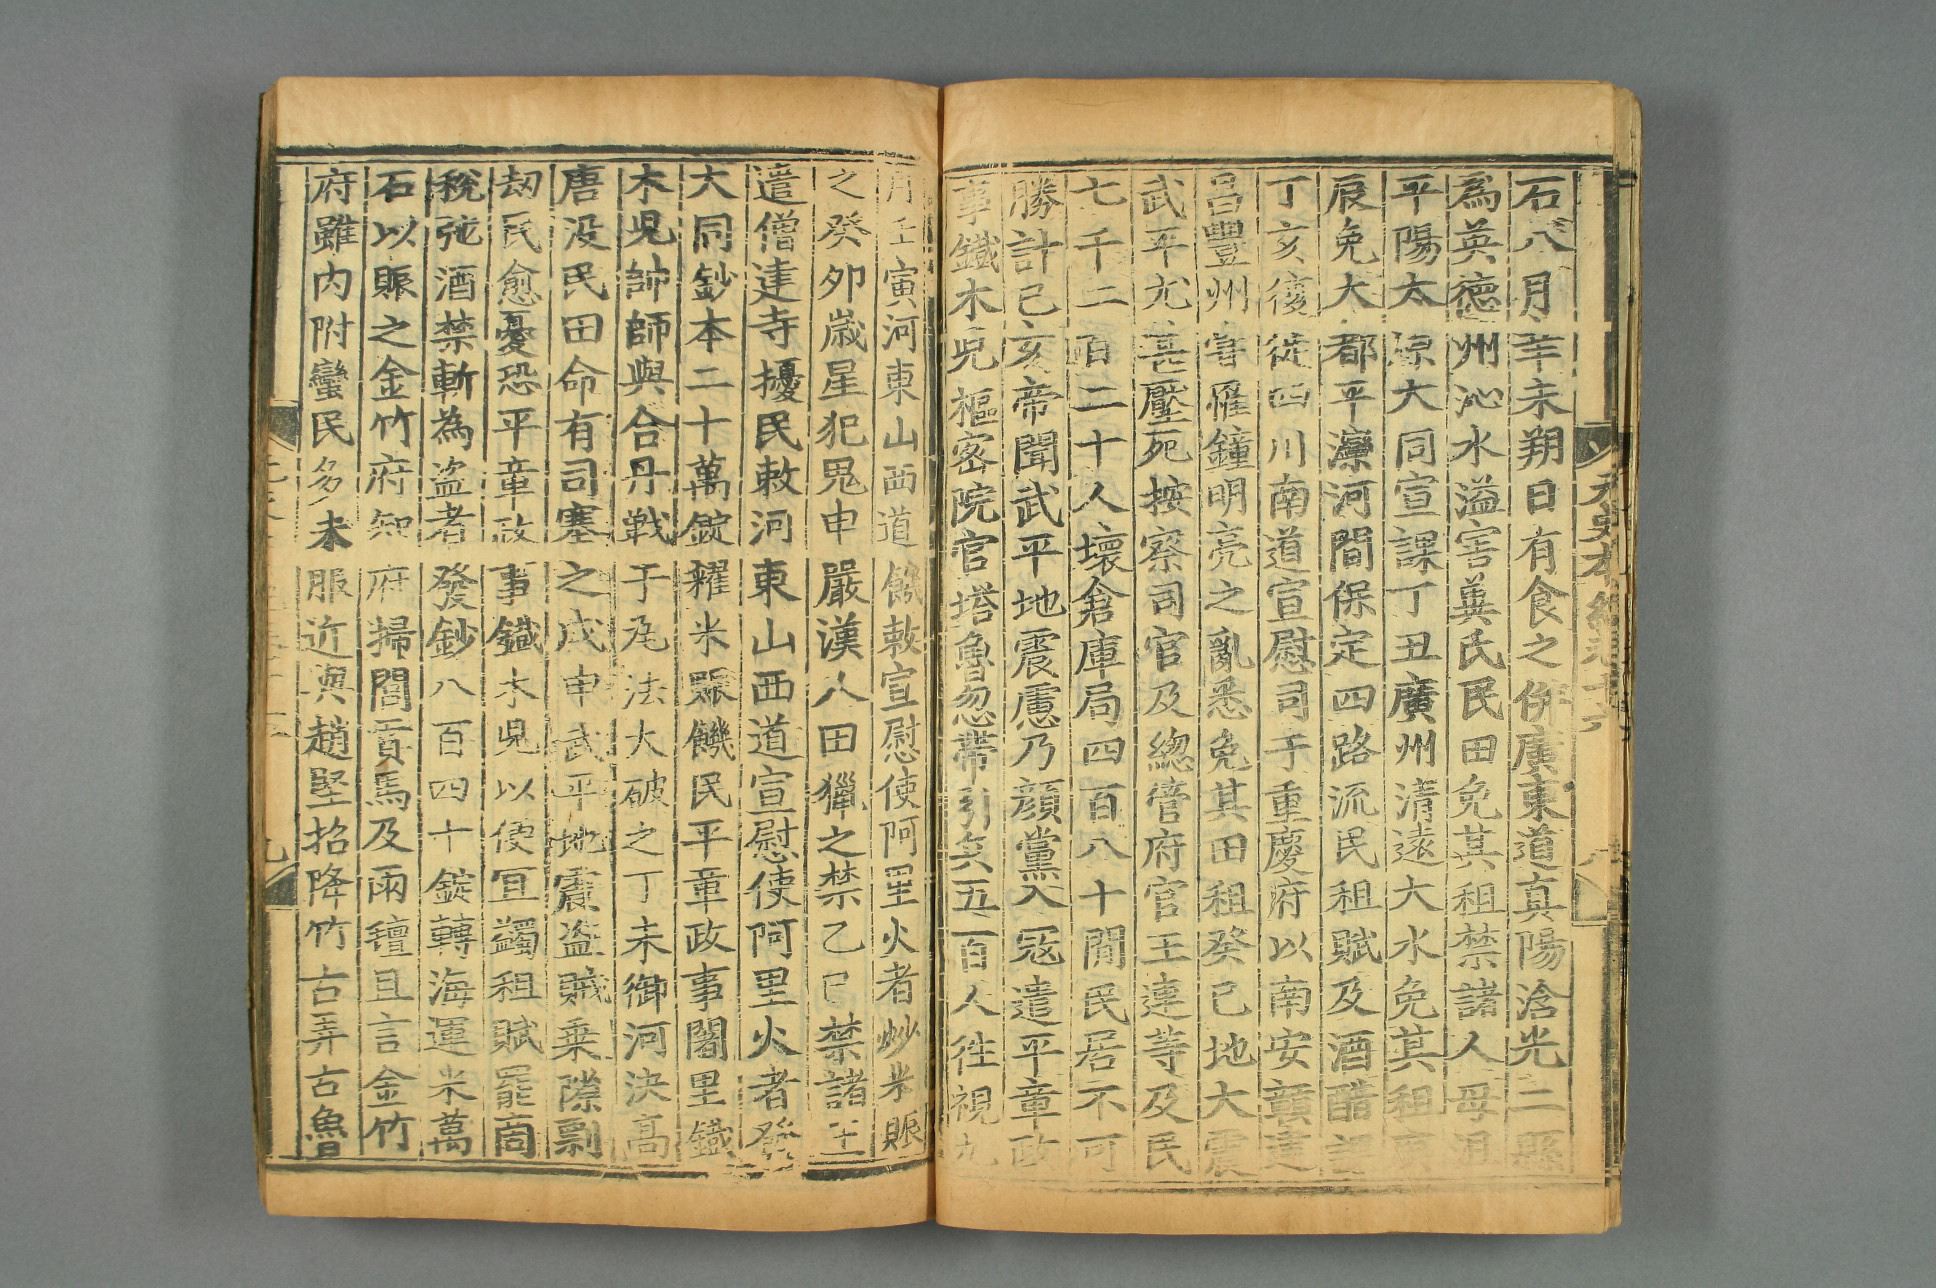 元史本紀卷十六
石八月辛未朔日有食之併廣東道真陽浛光二縣
爲英德州沁水溢害冀氏民田免其租禁諸人毋沮
平陽太原大同宣課丁丑廣州清遠大水免其租
辰免大都平灤河間保定四路流民租賦及酒醋課
丁亥復徙四川南道宣慰司于重慶府以南安贛建
昌豐州嘗罹鐘明亮之亂悉免其田租癸巳地大震
武平尤甚壓死按察司官及總管府官王連等及民
七千二百二十人壞倉庫局四百八十間民居不可
勝計己亥帝聞武平地震慮乃顔黨入冦遣平章政
事鐵木兒樞密院官塔魯忽帶引兵五百人徃視九
月壬寅河東山西道饑敕宣慰使阿里火者炒米賑
之癸卯歲星犯鬼申嚴漢人田獵之禁乙巳禁諸王
遣僧建寺擾民敕河東山西道宣慰使阿里火者發
大同鈔本二十萬錠糴米賑饑民平章政事闍里鐵
木兒帥師與合丹戰于瓦法大破之丁未御河決高
唐没民田命有司塞之戊申武平地震盗賊乗隙剽
劫民愈憂恐平章政事鐵木兒以便宜蠲租賦罷商
稅弛酒禁斬為盗者發鈔八百四十錠轉海運米萬
石以賑之金竹府知府掃閭貢馬及雨氊且言金竹
府雖内附蠻民多未服近與趙堅招降竹古弄古魯